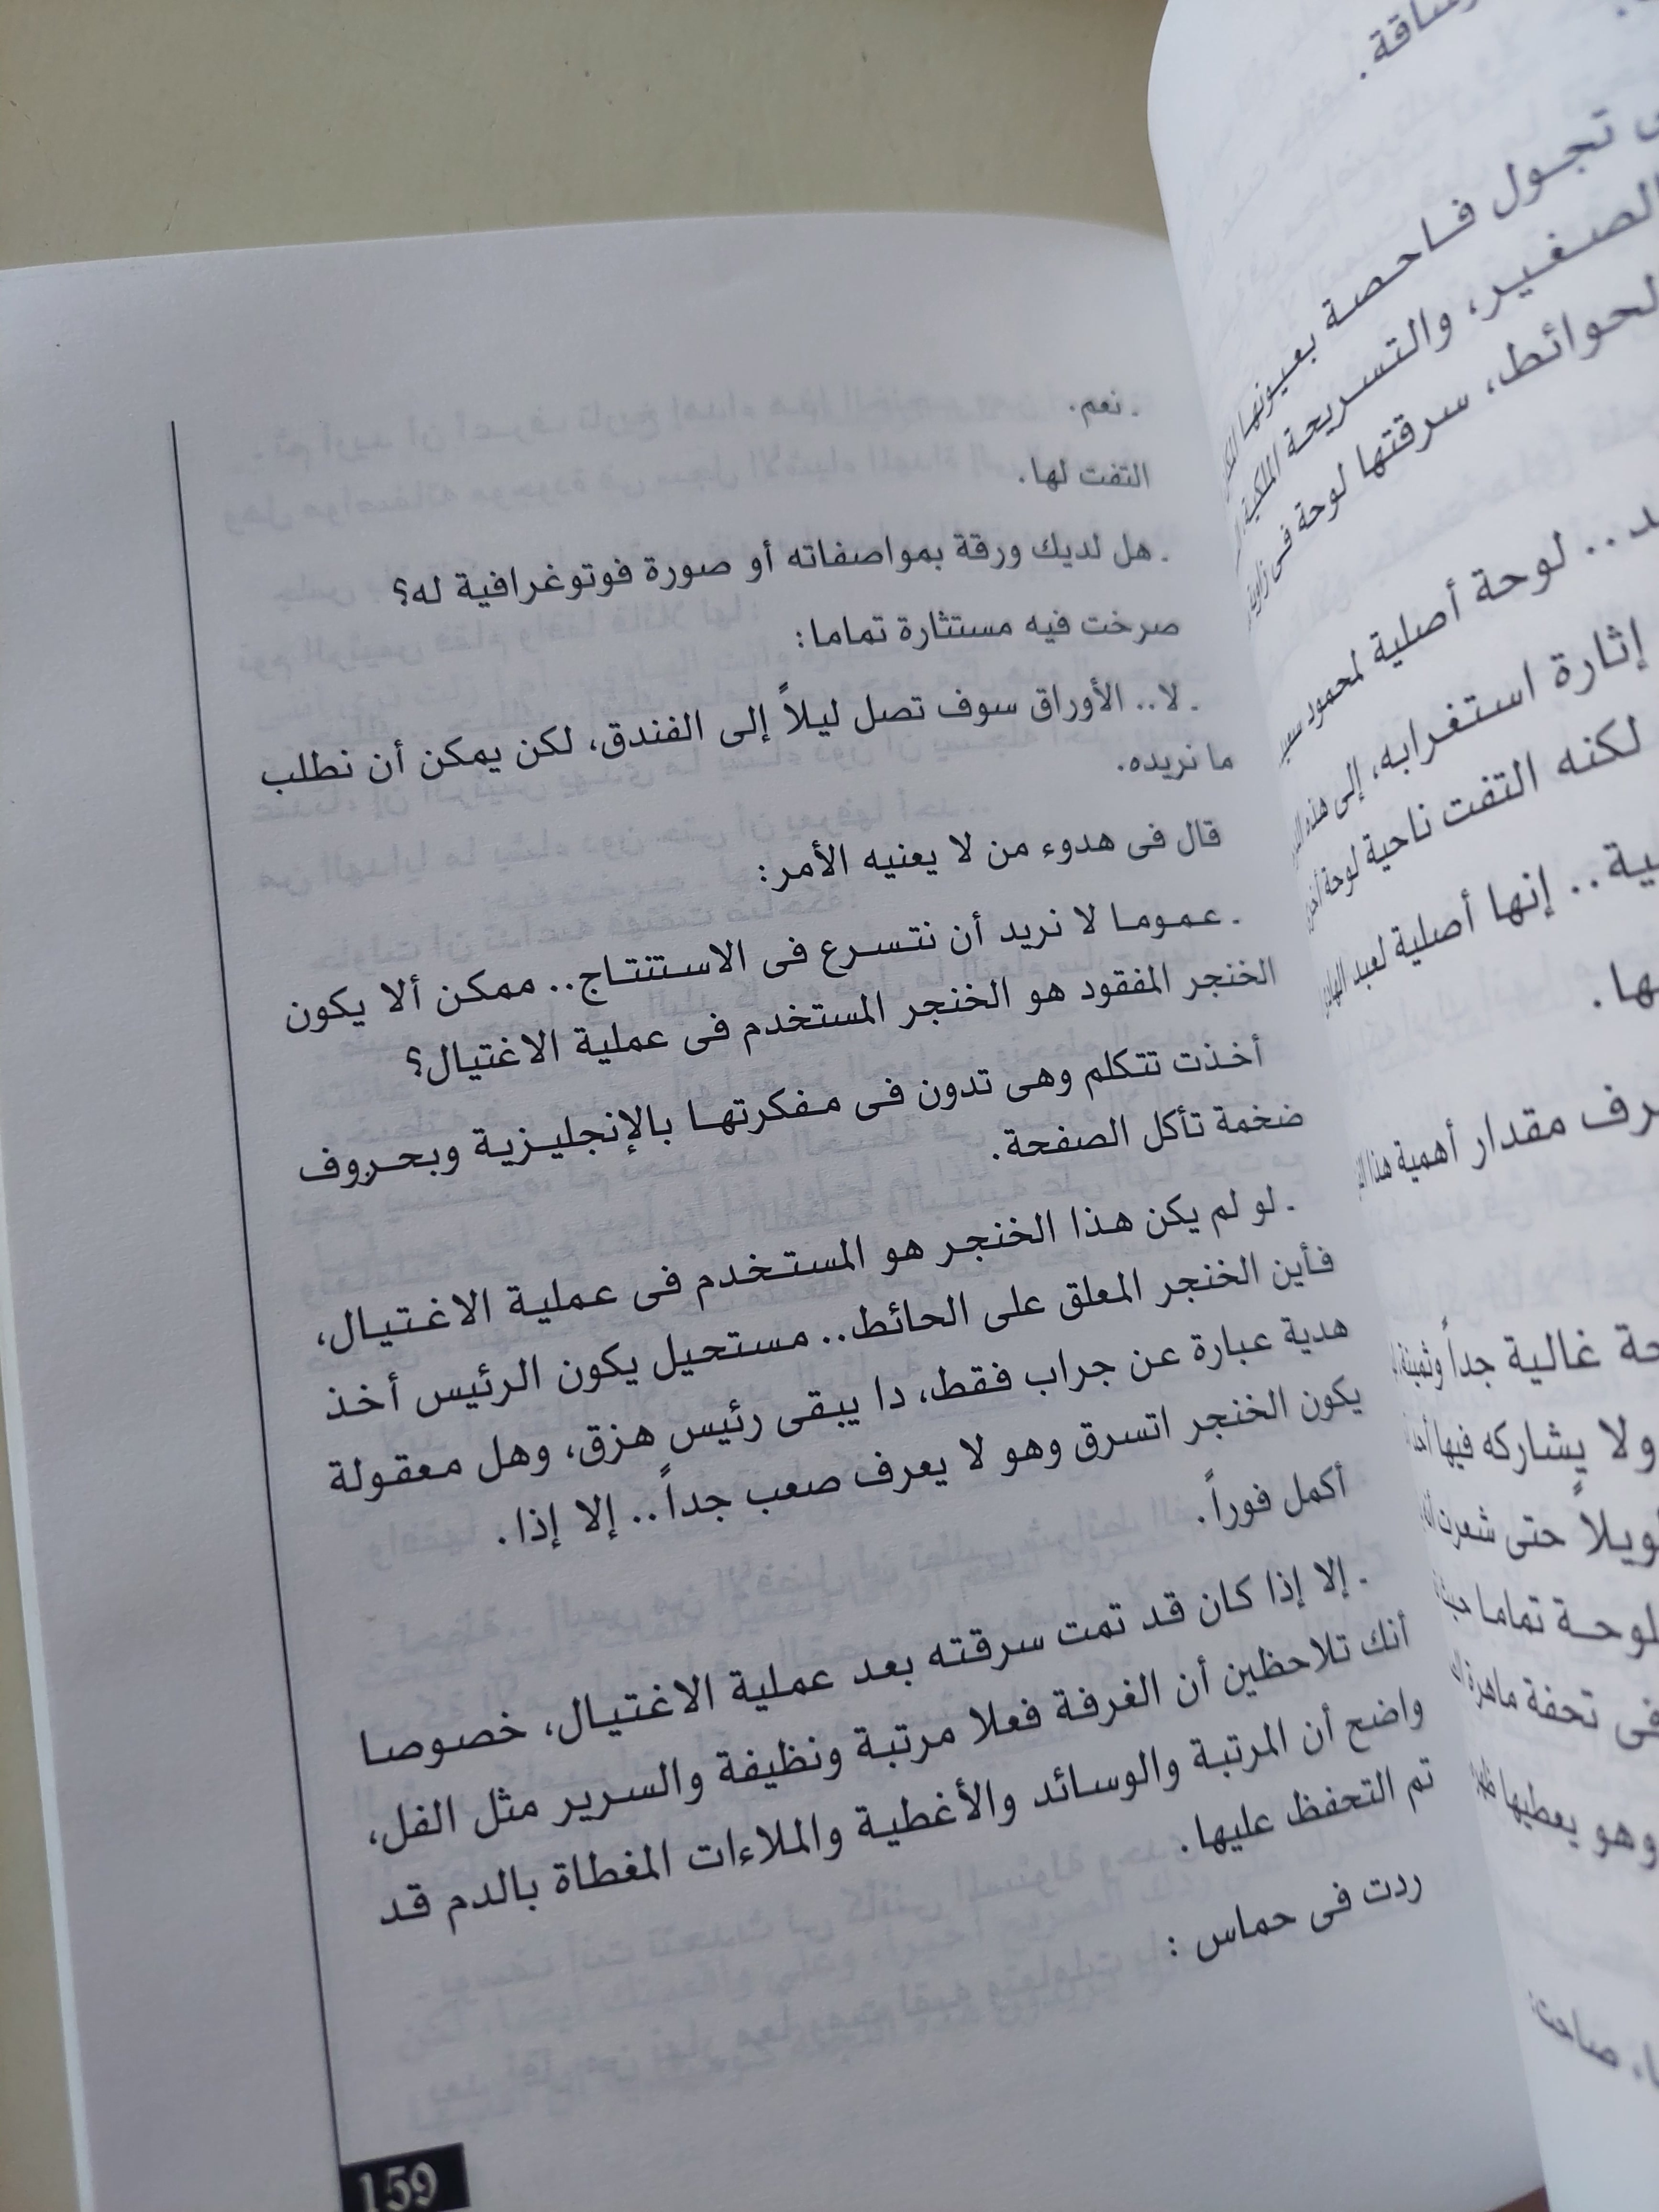 ـ نعم.
التفت لها.
ـ هل لديك ورقة بمواصفاته أو صورة فوتوغرافية له؟
صرخت فيه مستثارة تماما:
ـ لا.. الأوراق سوف تصل ليلاً إلى الفندق، لكن يمكن أن نطلب
ما نريده.
قال فى هدوء من لا يعنيه الأمر:
ـ عموما لا نريد أن نتسرع فى الاستنتاج.. ممكن ألا يكون
الخنجر المفقود هو الخنجر المستخدم فى عملية الاغتيال؟
أخذت تتكلم وهى تدون فى مفكرتها بالإنجليزية وبحروف
ضخمة تأكل الصفحة.
ـ لو لم يكن هذا الخنجر هو المستخدم فى عملية الاغتيال،
فأين الخنجر المعلق على الحائط.. مستحيل يكون الرئيس أخذ
هدية عبارة عن جراب فقط، دا يبقى رئيس هزق، وهل معقولة
يكون الخنجر اتسرق وهو لا يعرف صعب جداً.. إلا إذا.
أكمل فوراً.
ـ إلا إذا كان قد تمت سرقته بعد عملية الاغتيال، خصوصا
أنك تلاحظين أن الغرفة فعلا مرتبة ونظيفة والسرير مثل الفل،
واضح أن المرتبة والوسائد والأغطية والملاءات المغطاة بالدم قد
تم التحفظ عليها.
ردت فى حماس :
159
تجول فاحصة بعيونها
الصغير، والتسريحة الملكية
لحوائط، سرقتها لوحة فى زاوية
لوحة أصلية لمحمود سعيد
إثارة استغرابه، إلى هذه
لكنه التفت ناحية لوحة أخرى
إنها أصلية لعبد الهادى
مقدار أهمية هذا
غالية جداً وثمينة
ولا يشاركه فيها أحد
حتى شعرت
تماما
فى تحفة ماهرة
وهو يعطيها
صاحت: